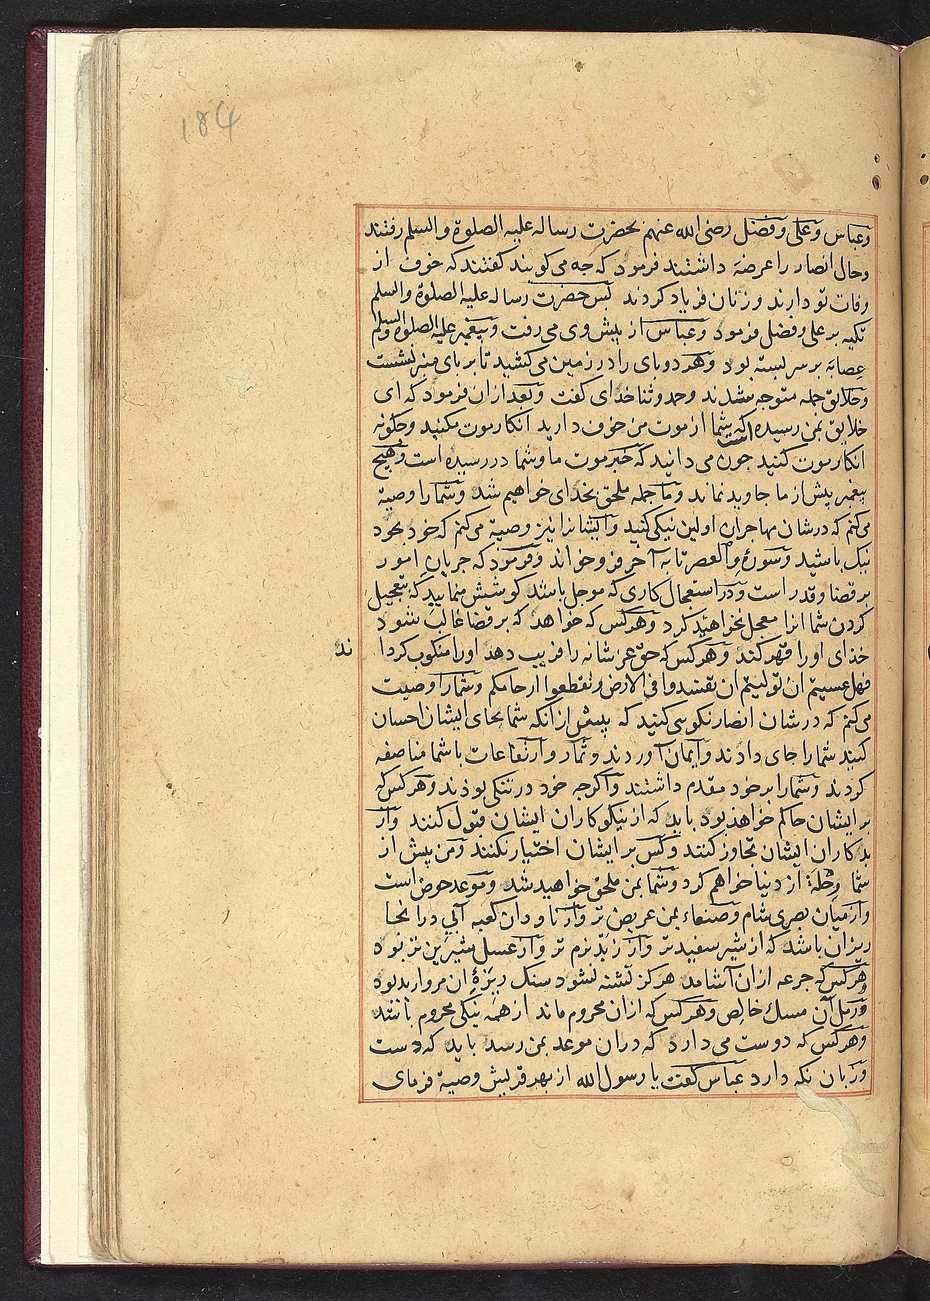 184
وعباس وعلی وفضل رضی الله عنهم بحضرت رساله علیه الصلوة والسلم رفتند
وحال انصار را عرضه داشتند فرمود که جه می کویند کفتند که خوف از
وفات تو دارند وزنان فریاد کردند بس حضرت رساله علیه الصلوة والسلم
تکیه بر علی وفضل فرمود وعباس از بیش وی می رفت وبیغمبر علیه الصلوة والسلم
عصابه بر سر بسته بود وهر دو بای را در زمین می کشید تا بر بای منبر نشست
وخلایق جمله متوجه شدند وحمد وثنا خدای کفت وبعد از ان فرمود که ای
خلایق بمن رسیده است که شما از موت من خوف دارید انکار موت مکنید وجکونه
انکار موت کنید جون می دانید که خبر موت ما وشما در رسیده است وهیج
بیغمبر بیش از ما جاوید نماند وما جمله ملحق بخدای خواهیم شد وشما را وصیة
می کنم که در شان مهاجران اولین نیکی کنید وایشانرا نیز وصیة می کنم که خود بخود
نیک باشید وسورۀ والعصر تا به آخر فرو خواند وفرمود که جریان امور
بر قضا وقدر است ودر استعجال کاری که موجل باشد کوشش منمایید که بتعجیل
کردن شما انرا معجل نخواهید کرد وهر کس که خواهد که بر قضا غالب شود
خدای او را قهر کند وهر کس که حق عز شانه را فریب دهد او را منکوب کردا ند
فهل عسیتم ان تولیتم ان تفسدوا فی الارض وتقطعوا ارحامکم وشما را وصیت
می کنم که در شان انصار نکویی کنید که بیش از انکه شما بجای ایشان احسان
کنید شما را جای دادند وایمان آوردند وثمار وارتفاعات با شما مناصفه
کردند وشما را بر خود مقدم داشتند واکرجه خود در تنکی بودند وهر کس که
بر ایشان حاکم خواهد بود باید که از نیکوکاران ایشان قبول کنند واز
بدکاران ایشان تجاوز کنند وکس بر ایشان اختیار نکنند ومن بیش از
شما رحلة از دنیا خواهم کرد وشما بمن ملحق خواهید شد وموعد حوض است
واز میان بصری شام وصنعاء یمن عریض تر واز ناودان کعبه آبی در انجا
ریزان باشد که از شیر سفیدتر واز زبد نرم تر واز عسل شیرین تر بود
وهر کس که جرعه از ان آشامد هرکز تشنه نشود سنک ریزۀ ان مروارید بود
ورمل آن مسک خالص وهر کس که ازان محروم ماند از همه نیکی محروم باشد
وهر کس که دوست می دارد که دران موعد بمن رسد باید که دست
وزبان نکه دارد عباس کفت یا رسول الله از بهر قریش وصیة فرمای